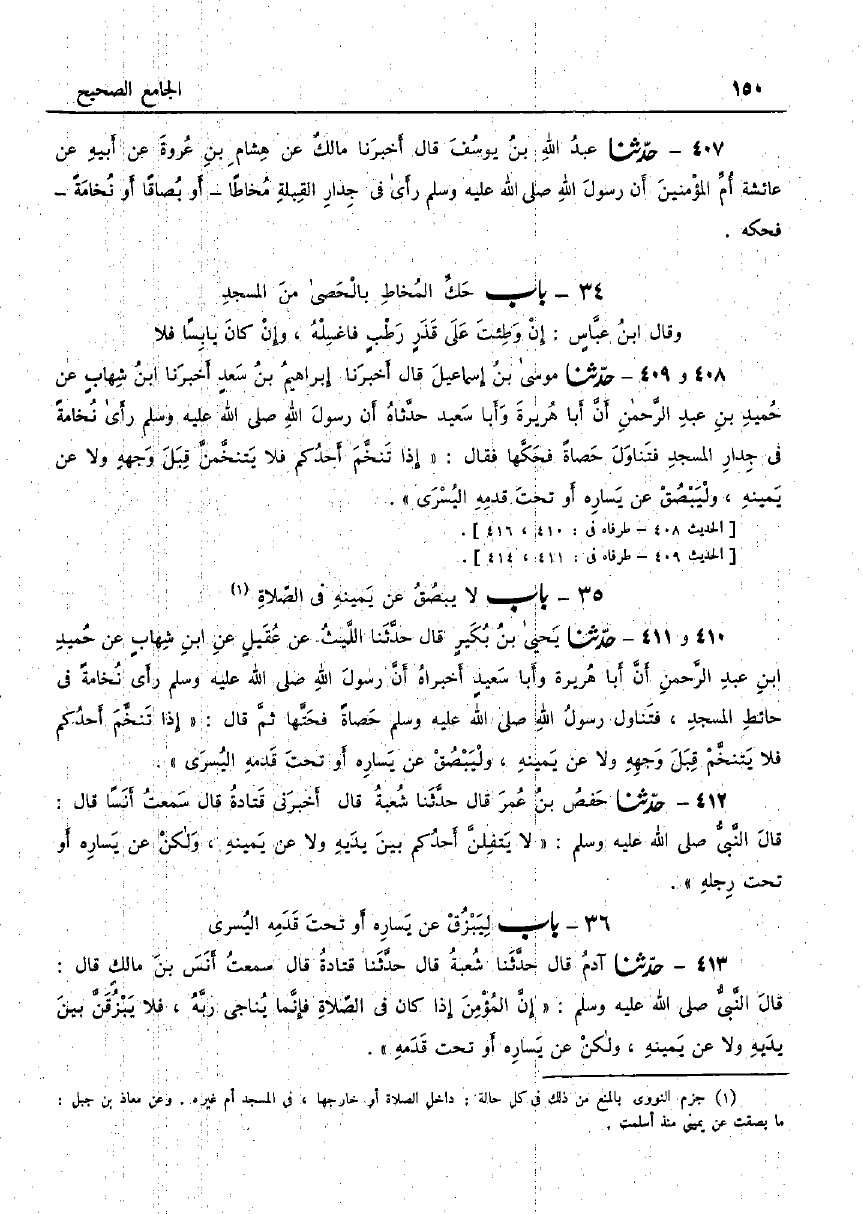 ١٥٠ الجامع الصحيح
٤٠٧ – حدّثنا عبدُ اللهِ بنُ يوسُفَ قال أخبرَنا مالكٌ عن هِشام ِ بنِ عُروةَ عن أبيهِ عن
عائشة أُمِّ المؤمنينَ أن رسولَ اللهِ صلى الله عليه وسلم رأَىٰ فى جِدارِ القِبلةِ مُخاطًا – أو بُصاقًا أو نُخامَةً –
فحكه .
٣٤ – باب حَكِّ المُخاطِ بالْحَصىٰ منَ المسجدِ
وقال ابنُ عبَّاسٍ : إنْ وَطِئتَ عَلَى قَذَرٍ رَطْبٍ فاغسِلْهُ ، وإنْ كانَ يابِسًا فلا
٤٠٨ و ٤٠٩ – حدّثنا موسىٰ بنُ إسماعيلَ قال أخبرَنا إبراهيمُ بنُ سَعدٍ أخبرَنا ابنُ شِهابٍ عن
حُميدِ بنِ عبدِ الرَّحمٰنِ أنَّ أبا هُريرةَ وَأبا سَعيد حدَّثاهُ أن رسولَ اللهِ صلى الله عليه وسلم رأَىٰ نُخامةً
فى جِدارِ المسجدِ فتَناوَلَ حَصاةً فحَكَّها فقال : « إذا تَنخَّمَ أحدُكم فلا يَتنخَّمنَّ قِبَلَ وَجههِ ولا عن
يَمينهِ ، ولْيَبْصُقْ عن يَساره أو تحتَ قدمِهِ اليُسْرَى » .
[ الحديث ٤٠٨ – طرفاه فى : ٤١٠ ، ٤١٦ ] .
[ الحديث ٤٠٩ – طرفاه فى : ٤١١ ، ٤١٤ ] .
٣٥ – باب لا يبصُقُ عن يَمينهِ فى الصَّلاةِ (١)
٤١٠ و ٤١١ – حدّثنا يَحيىٰ بنُ بُكَيرٍ قال حدَّثَنا اللَّيثُ عن عُقَيلٍ عنِ ابنِ شِهابٍ عن حُميدِ
ابنِ عبدِ الرَّحمنِ أنَّ أبا هُريرة وأبا سَعيدٍ أخبراهُ أنَّ رسولَ اللهِ صلى الله عليه وسلم رأَى نُخامةً فى
حائطِ المسجدِ ، فتَناول رسولُ اللهِ صلى الله عليه وسلم حَصاةً فحَتَّها ثمَّ قال : « إذا تَنخَّمَ أحدُكم
فلا يَتنخَّمْ قِبَلَ وَجهِهِ ولا عن يَمينهِ ، ولْيَبْصُقْ عن يَساره أو تحتَ قدمهِ اليُسرَى » .
٤١٢ – حدّثنا حَفصُ بنُ عُمرَ قال حدَّثَنا شُعبةُ قال أخبرَنى قَتادةُ قال سَمعتُ أنَسًا قال :
قالَ النَّبىُّ صلى الله عليه وسلم : « لا يَتفِلنَّ أحدُكم بينَ يدَيهِ ولا عن يَمينهِ ، وَلٰكنْ عن يَساره أو
تحت رِجلهِ » .
٣٦ – باب لِيَبْزُقْ عن يَساره أو تحتَ قَدَمِه اليُسرى
٤١٣ – حدّثنا آدمُ قال حدَّثَنا شُعبةُ قال حدَّثَنا قتادةُ قال سمعتُ أنَسَ بنَ مالكٍ قال :
قالَ النَّبىُّ صلى الله عليه وسلم : « إنَّ المُؤْمِنَ إذا كان فى الصَّلاةِ فإنَّما يُناجى ربَّهُ ، فلا يَبْزُقَنَّ بينَ
يدَيهِ ولا عن يَمينهِ ، ولٰكنْ عن يَساره أو تحت قَدَمهِ » .
(١) جزم النووى بالمنع من ذلك فى كل حالة : داخل الصلاة أو خارجها ، فى المسجد أم غيره . وعن معاذ بن جبل :
ما بصقت عن يمينى منذ أسلمت .